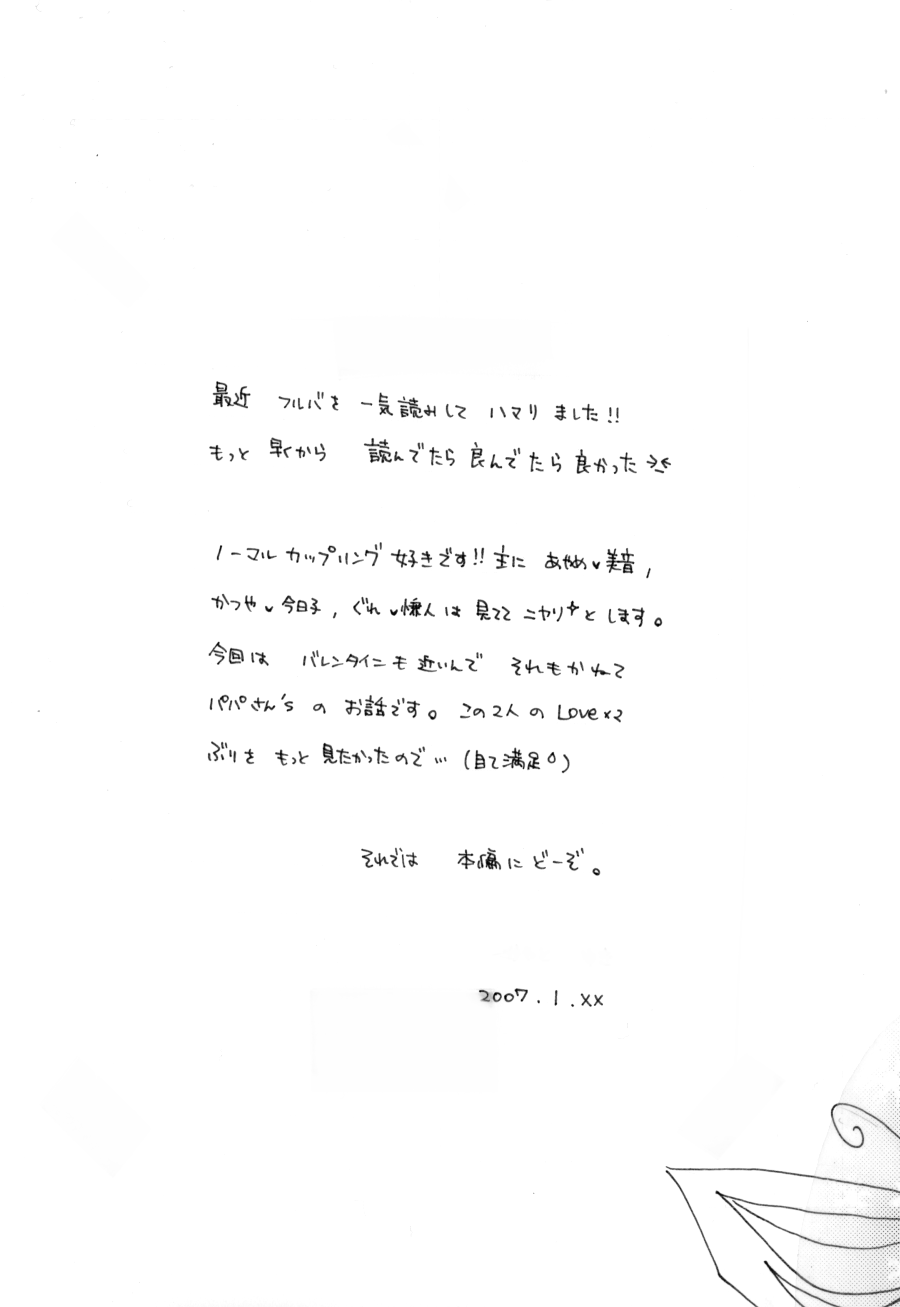 最近 フルバを 一気読みして ハマリ ました!!
もっと 早くから 読んでたら良んでたら良かった >⁠<
ノーマルカップリング 好きです!! 主に あやめ♥美音,
かつや♥今日子, ぐれ♥慊人は 見てて ニヤリ✧と します。
今回は バレンタインも近いんで それもかねて
パパさん'sの お話です。この2人の Love×2
ぶりを もっと 見たかったので… (自己満足◊)
それでは 本編にどーぞ。
2007.1.xx